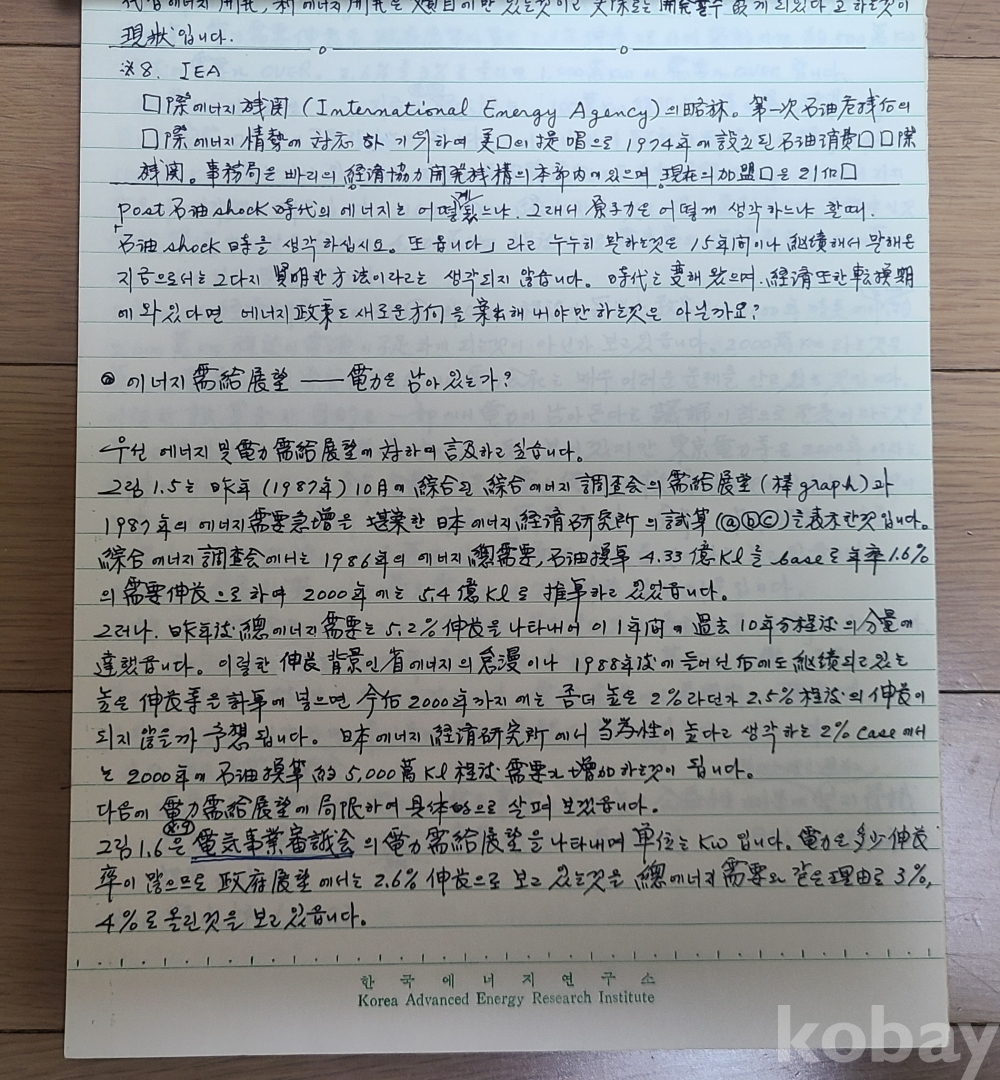 代替에너지 開発, 新에너지 開発은 項目에만 있는것이고 実際로는 開発할수 없게 되있다고 하는것이
現狀입니다.
※8. IEA
□際에너지 機関 (International Energy Agency)의 略称。第一次石油危機后의
□際에너지 情勢에 対応하기 위하여 美□의 提唱으로 1974年에 設立된 石油消費□□際
機関。事務局은 빠리의 経済協力開発機構의 本部内에 있으며, 現在의 加盟□은 21個□
post石油shock時代의 에너지는 어떻게 되겠느냐. 그래서 原子力은 어떻게 생각하느냐 할때.
「石油shock時을 생각하십시요. 또 옵니다」라고 누누히 말하는것은 15年間이나 継続해서 말해온
지금으로서는 그다지 賢明한 方法이라고는 생각되지 않습니다. 時代는 変해 왔으며, 経済 또한 転換期
에 와 있다면 에너지 政策도 새로운 方向을 案出해 내야만 하는것은 아닐까요?
에너지 需給展望 —— 電力은 남아있는가?
우선 에너지 및 電力需給展望에 対하여 言及하고 싶습니다.
그림 1.5는 昨年 (1987年) 10月에 綜合된 綜合에너지 調査会의 需給展望 (棒graph)과
1987年의 에너지 需要急増을 堪案한 日本에너지 経済研究所의 試算(ⓐⓑⓒ)를 表示한것입니다.
綜合에너지調査会에서는 1986年의 에너지 總需要, 石油換算 4.33億Kl를 base로 年率 1.6%
의 需要伸長으로 하여 2000年에는 5.4億Kl로 推算하고 있었습니다.
그러나. 昨年度 總에너지 需要는 5.2% 伸長을 나타내어 이 1年間에 過去 10年分程度의 分量에
達했습니다. 이럴한 伸長背景인 省에너지의 怠慢이나 1988年度에 들어선 后에도 継続되고 있는
높은 伸長率을 計算에 넣으면 今后 2000年까지에는 좀더 높은 2%라던가 2.5%程度의 伸長이
되지 않을까 予想됩니다. 日本에너지 経済研究所에서 当為性이 높다고 생각하는 2% case에서
는 2000年에 石油換算 約 5,000萬Kl 程度 需要가 増加하는것이 됩니다.
다음에 電力需給展望에 局限하여 具体的으로 살펴 보겠습니다.
※9
그림 1.6은 電気事業審議会의 電力需給展望을 나타내며 単位는 KW 입니다. 電力은 多少 伸長
率이 많으므로 政府展望에서는 2.6% 伸長으로 보고 있는것을 總에너지 需要와 같은 理由로 3%,
4%로 올린것을 보고 있읍니다.
한국에너지연구소
Korea Advanced Energy Research Institute
kobay